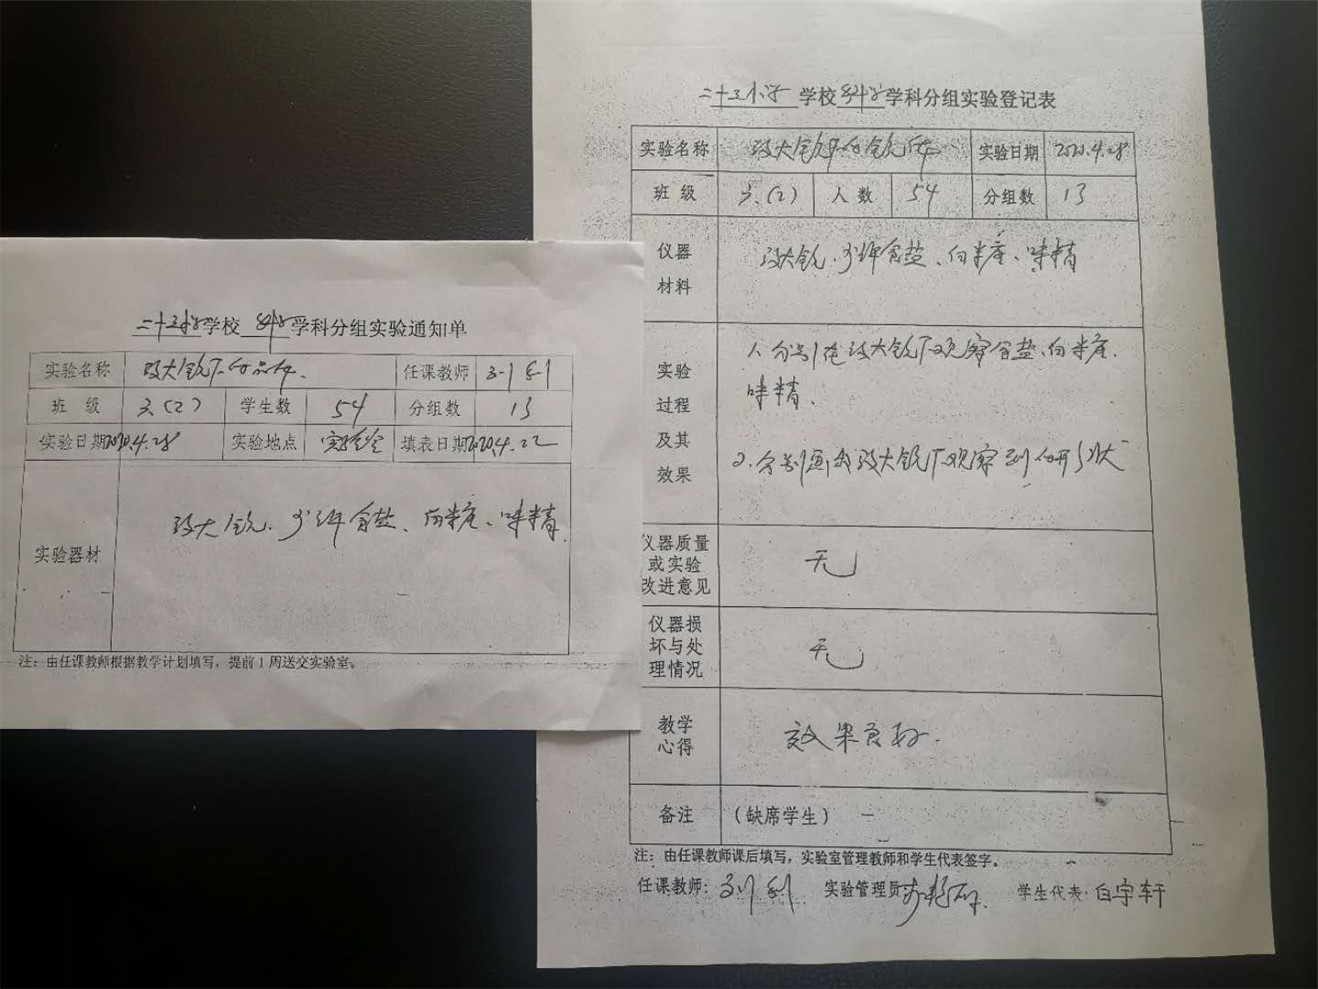 二十三小学学校科学学科分组实验通知单
实验名称 放大镜下的晶体 任课教师
班 级 三(2) 学生数 54 分组数 13
实验日期 2020.4.28 实验地点 实验室 填表日期 2020.4.22
实验器材 放大镜、少许食盐、白砂糖、味精
注:由任课教师根据教学计划填写,提前1周送交实验室。
二十三小学 学校科学学科分组实验登记表
实验名称 放大镜下的 实验日期 2020.4.28
班 级 三(2) 人 数 54 分组数 13
仪器
材料
放大镜、少许食盐、白砂糖、味精
实验
过程
及其
效果
1、分别在放大镜下观察食盐、白砂糖、
味精、
2、分别画出放大镜下观察到的形状
仪器质量
或实验
改进意见
无
仪器损
坏与处
理情况
无
教学
心得
效果良好.
备注 (缺席学生) 一
注:由任课教师课后填写,实验室管理教师和学生代表签字。
任课教师: 实验管理员 学生代表:白宇轩